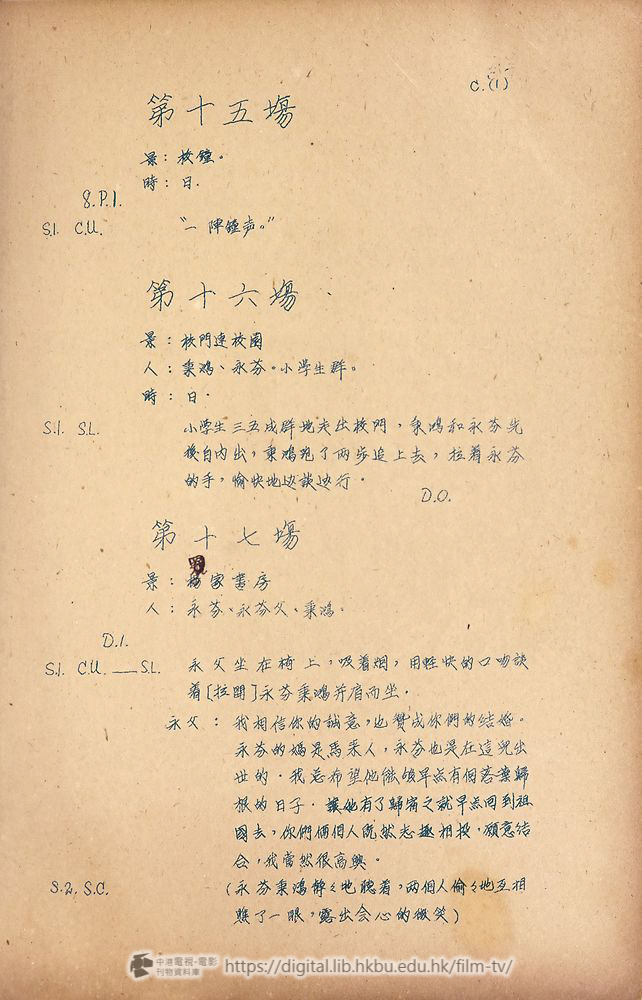 C.(1)
第十五場
景：校鐘。
時：日.
S.P.1.
S.1. C.U. “一陣鐘声。”
第十六場
景：校門連校園
人：秉鴻、永芬。小学生群。
時：日.
S.1. S.L. 小学生三五成群地走出校門，秉鴻和永芬先
後自内出，秉鴻跑了兩步追上去，拉着永芬
的手，愉快地边談边行。
D.O.
第十七場
景： 家書房
人：永芬、永芬父、秉鴻.
D.1.
S.1. C.U. — S.L. 永父坐在椅上，吸着烟，用輕快的口吻談
着[拉開]永芬秉鴻并肩而坐.
永父：我相信你的誠意，也贊成你們的結婚。
永芬的媽是馬来人，永芬也是在這児出
世的.我总希望他能領早点有個落葉歸
根的日子.讓他有了歸宿之就早点回到祖
國去，你們倆個人既然志趣相投，願意結
合，我當然很高興。
S.2. S.C. （永芬秉鴻静々地聴着，两個人偷々地互相
瞧了一眼，露出会心的微笑）
中港電視-電影
刊物資料庫
https://digital.lib.hkbu.edu.hk/film-tv/